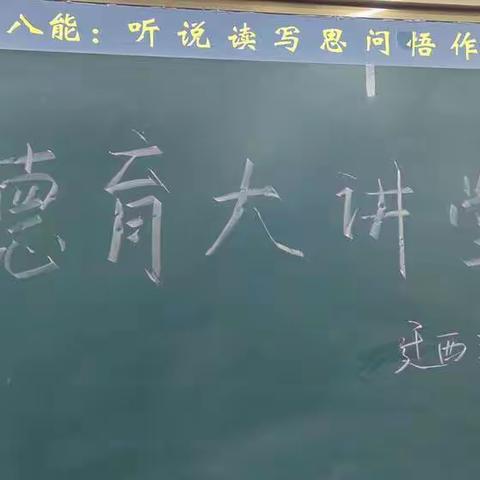 八能：听说读写思问悟作
德育大讲堂
廷西